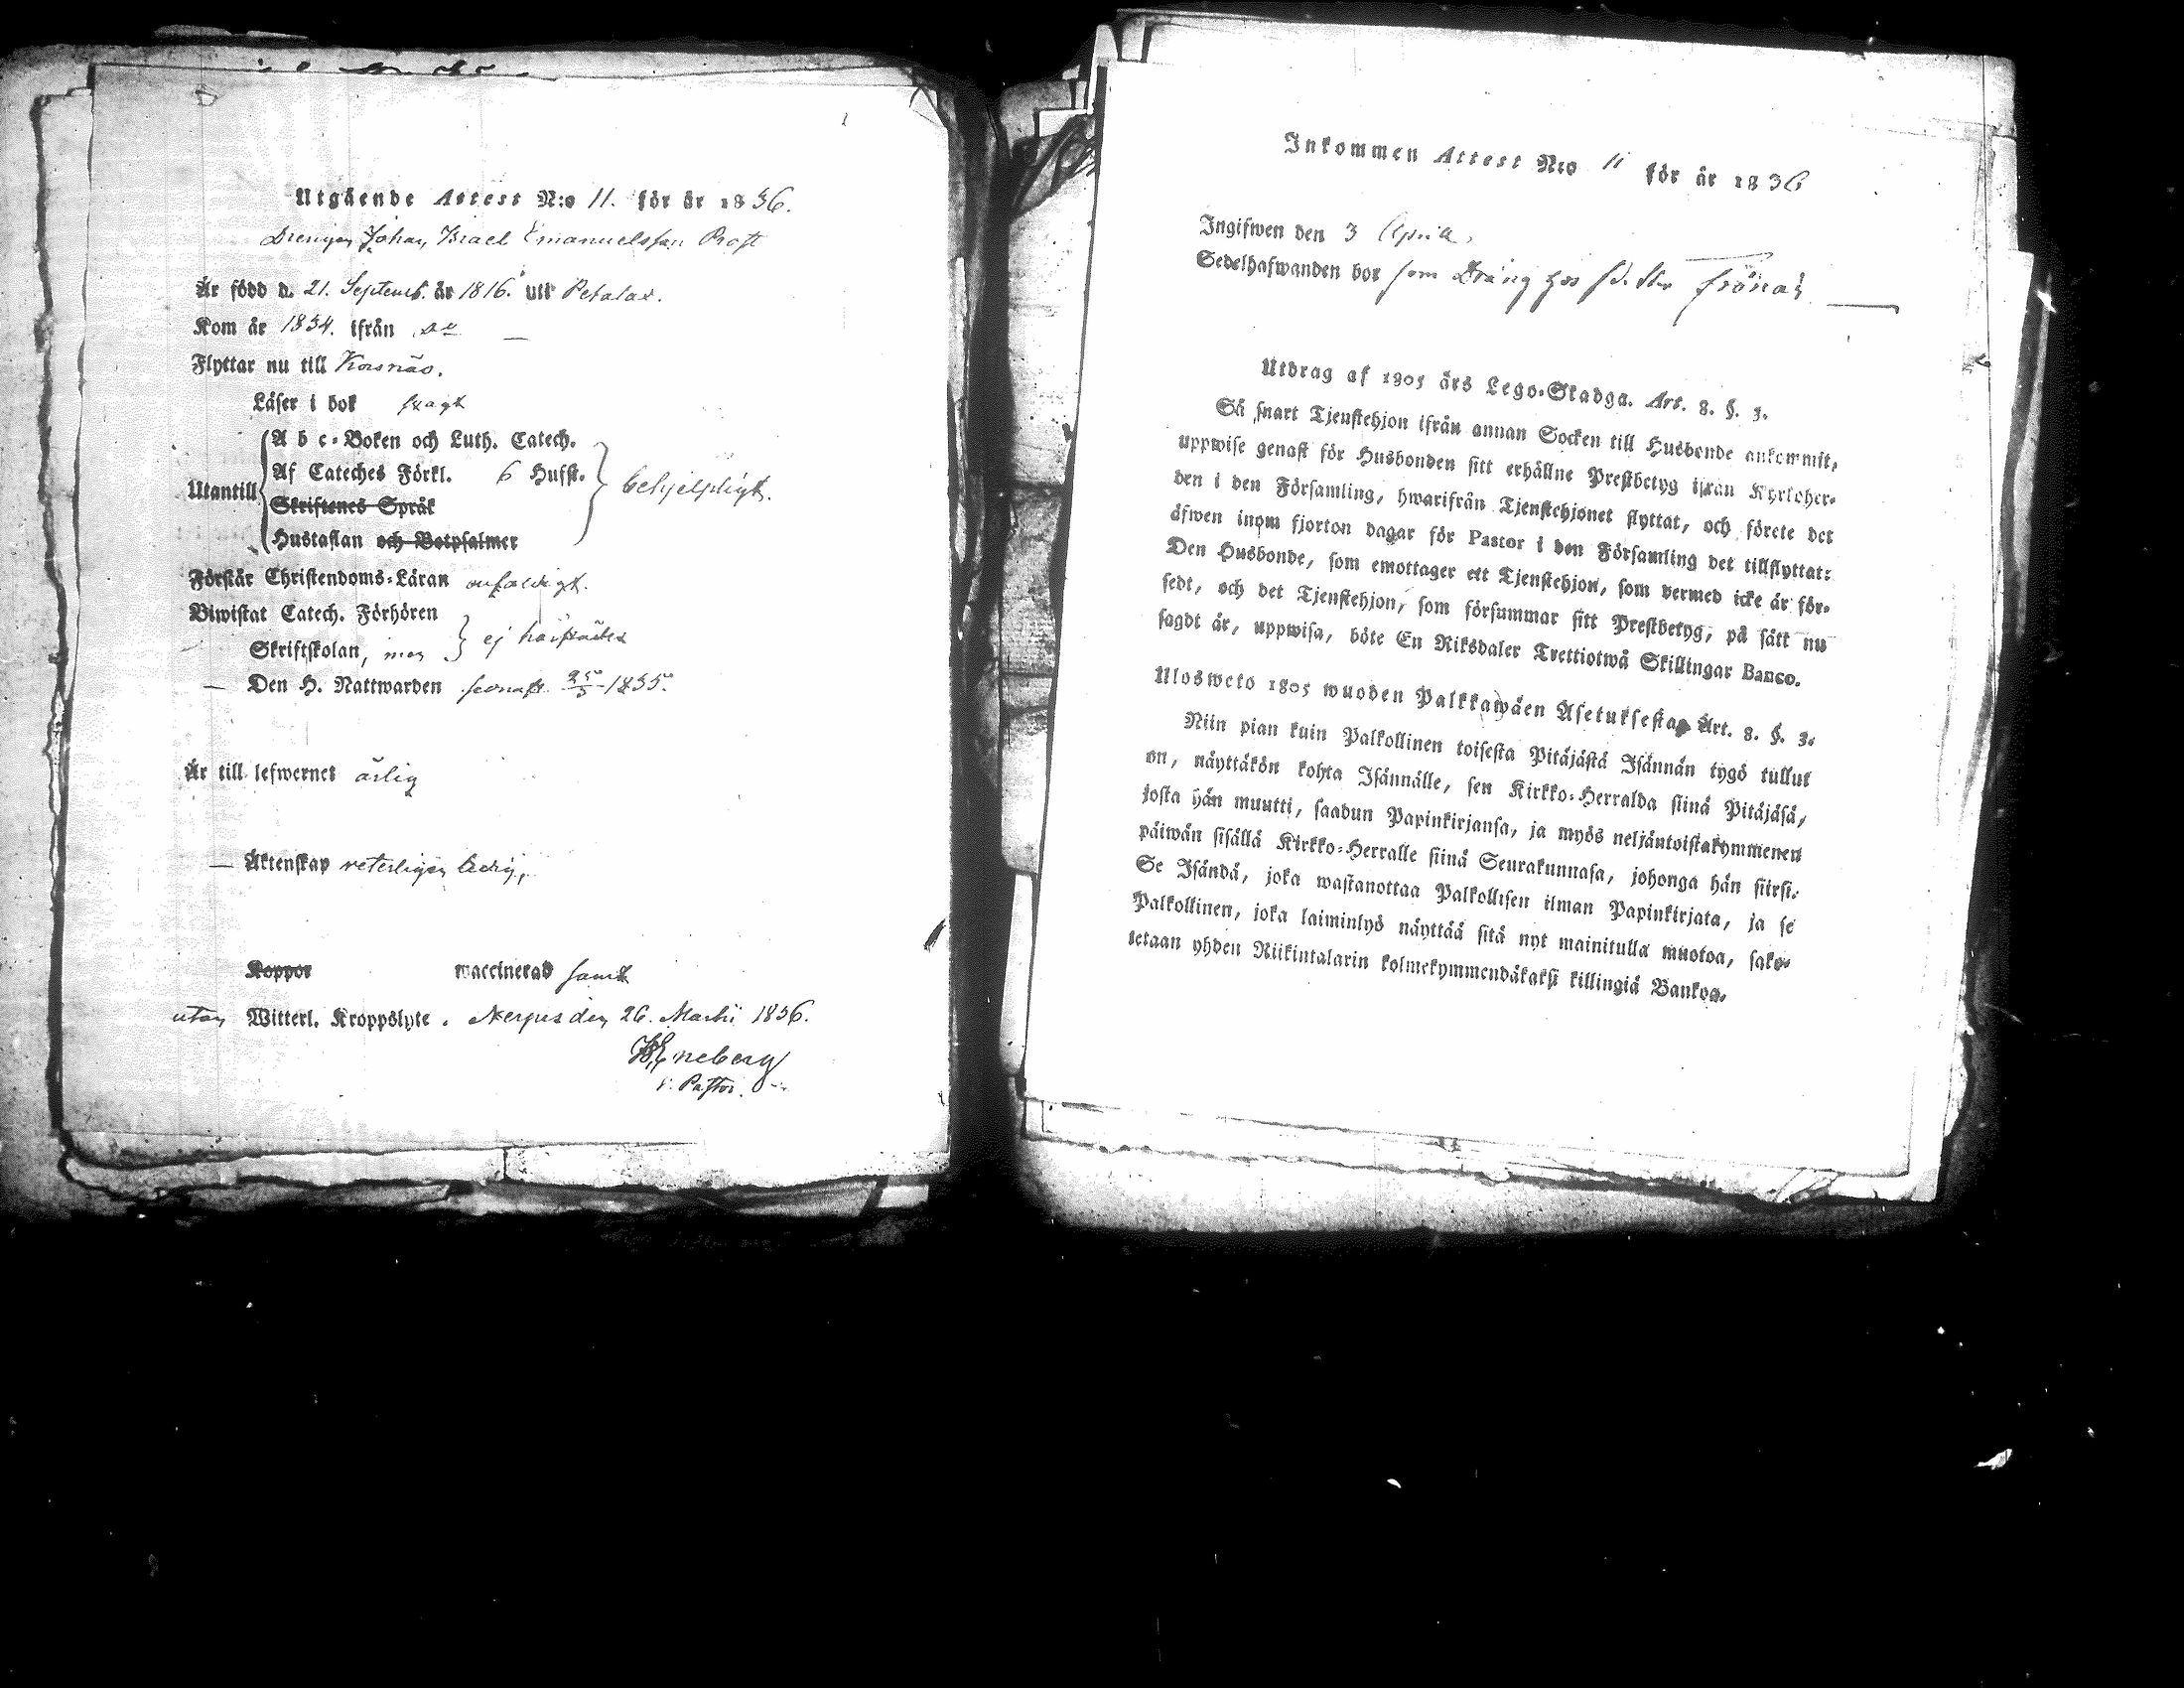 Utgående Attest N:o 11. för år 1836.
Drengen Johan Israel Emanuelsson Prost
Är född d. 21. Septemb. år 1816. uti Petalax.
Kom år 1834. ifrån do —
Flyttar nu till Korsnäs.
Läser i bok svagt
Utantill
A b c-Boken och Luth. Catech.
Af Cateches Förkl. 6 Hufst.
Skriftenes Språk
Hustaflan och Botpsalmer
behjelpligt.
Förstår Christendoms-Läran enfaldigt.
Biwistat Catech. Förhören
Skriftskolan, men
ej härstädes
— Den H. Nattwarden senast 25/5 1835.
Är till lefwernet ärlig
— Äktenskap veterligen ledig,
Koppor waccinerad samt
utan Witterl. Kroppslyte. Nerpes den 26. Martii 1836.
Eneberg
v. Pastor.
Inkommen Attest N:o 11 för år 1836
Ingifwen den 3 April.
Sedelhafwanden bor som Dräng hos
Utdrag af 1805 års Lego-Stadga. Art. 8. §. 3.
Så snart Tjenstehjon ifrån annan Socken till Husbonde ankommit,
uppwise genast för Husbonden sitt erhållne Prestbetyg ifrån Kyrkoher-
den i den Församling, hwarifrån Tjenstehjonet flyttat, och förete det
äfwen inom fjorton dagar för Pastor i den Församling det tillflyttat:
Den Husbonde, som emottager ett Tjenstehjon, som dermed icke är för-
sedt, och det Tjenstehjon, som försummar sitt Prestbetyg, på sätt nu
sagdt är, uppwisa, böte En Riksdaler Trettiotwå Skillingar Banco.
Ulosweto 1805 wuoden Palkkawäen Asetuksesta. Art. 8. §. 3.
Niin pian kuin Palkollinen toisesta Pitäjästä Isännän tygö tullut
on, näyttäkön kohta Isännälle, sen Kirkko-Herralda siinä Pitäjäsä,
josta hän muutti, saadun Papinkirjansa, ja myös neljäntoistakymmenen
päiwän sisällä Kirkko-Herralle siinä Seurakunnasa, johonga hän siirsi.
Se Isändä, joka wastanottaa Palkollisen ilman Papinkirjata, ja se
Palkollinen, joka laiminlyö näyttää sitä nyt mainitulla muotoa, sako-
tetaan yhden Riikintalarin kolmekymmendäkaksi killingiä Bankoa.